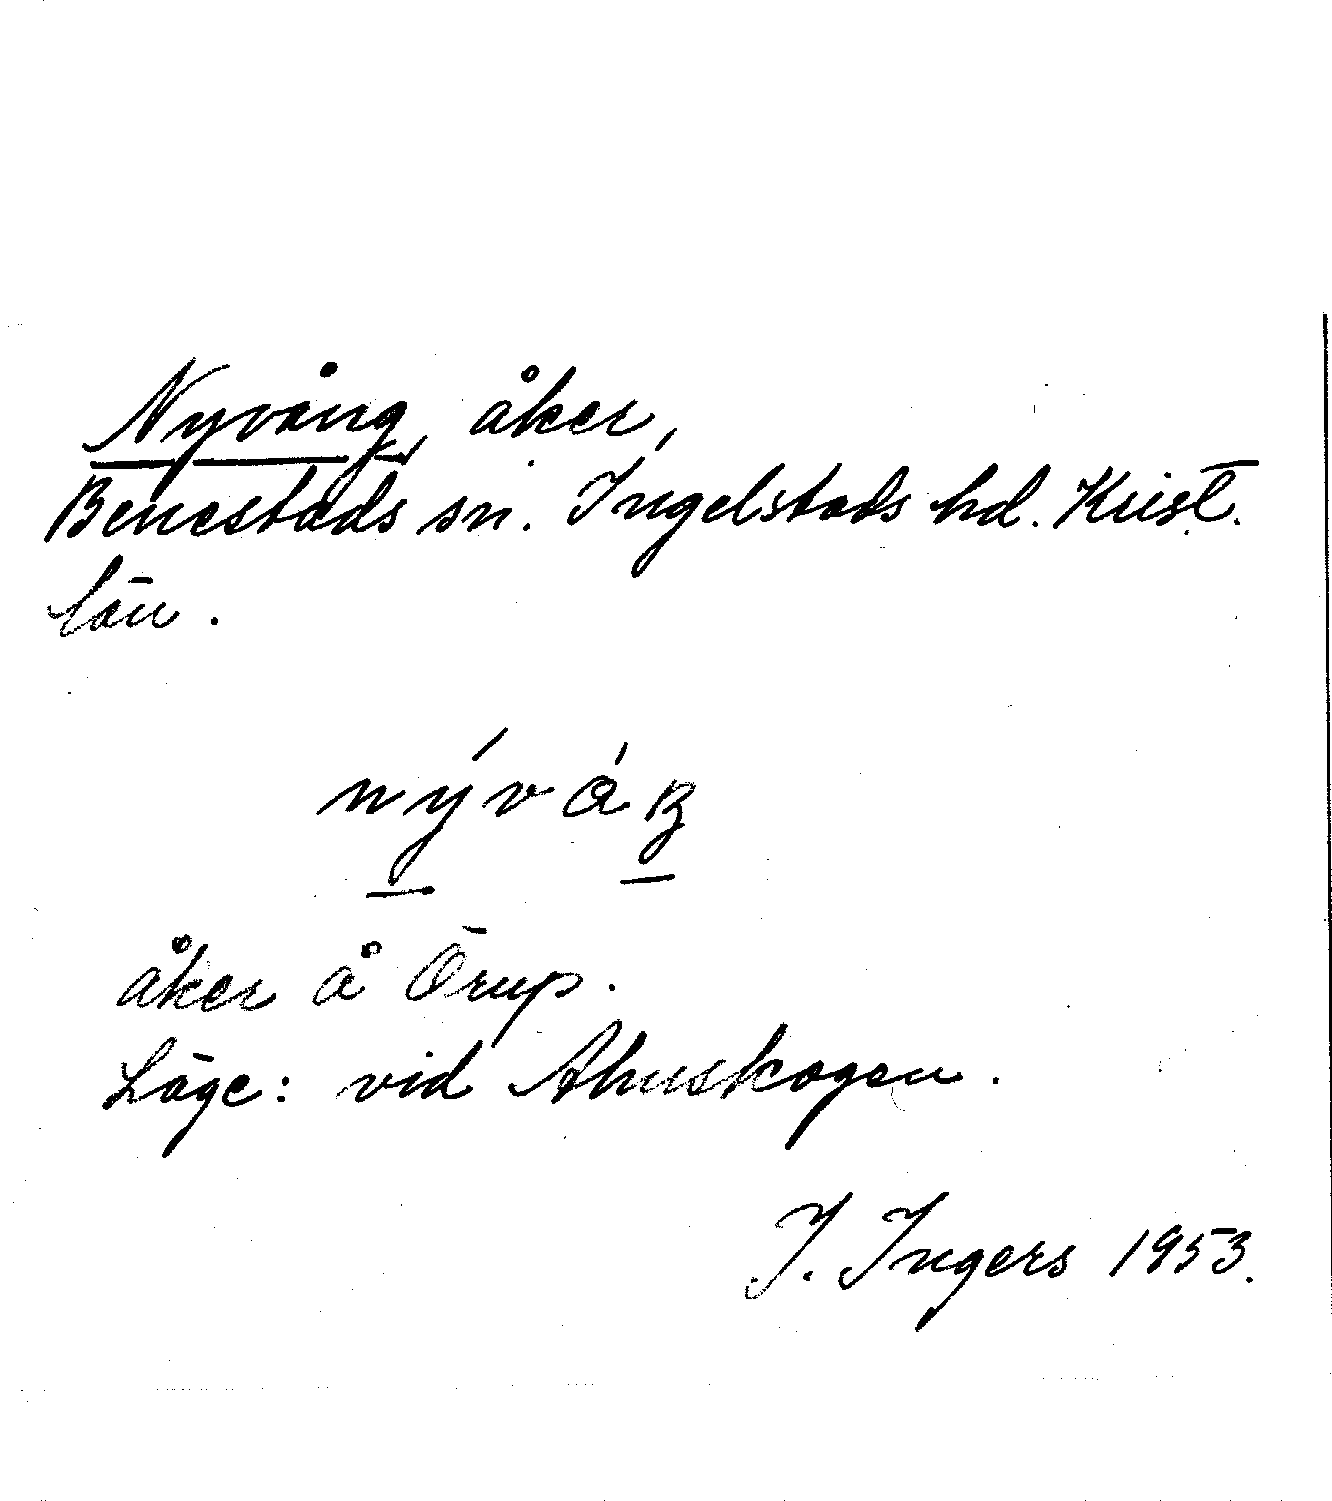 Nyvång, åker,
Benestads sn. Ingelstads hd. Krist.
län.
nývá
åker å Örup.
Läge: vid Ahuskogen.
I. Ingers 1953.